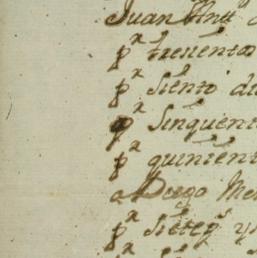 Juan Anto
pr tresientos
pr siento di
pr sinquent
pr quinient
a Diego Me
pr siete ps y